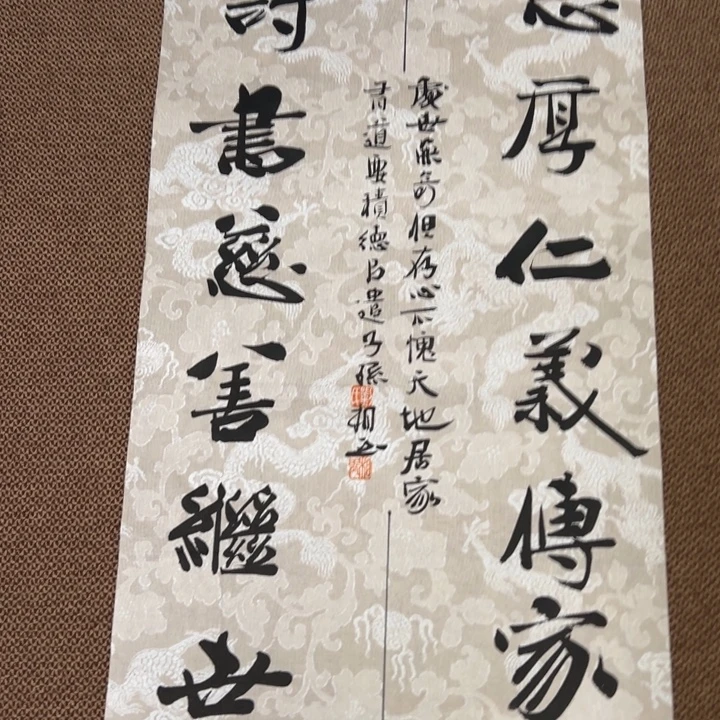 忠厚仁義傳家
處世無奇但存心不愧天地居家
有道要積德㠯遺子孫
詩書慈善繼世